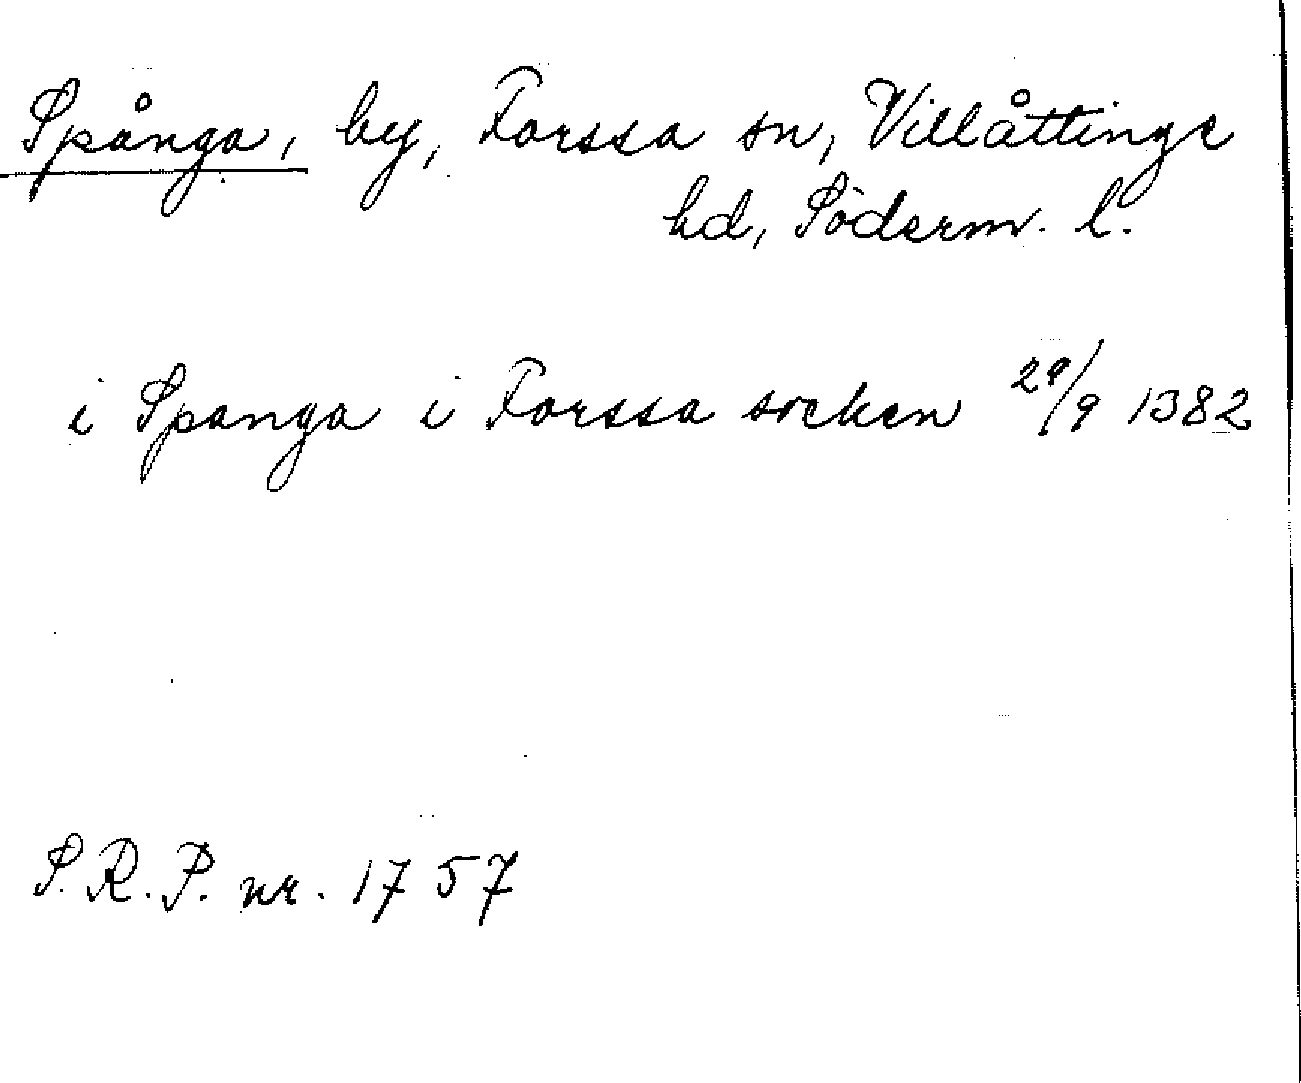 Spånga, by, Forssa sn, Villåttinge
hd, Söderm. l.
i Spanga i Forssa socken 29/9 1382
S.R.P. nr. 1757